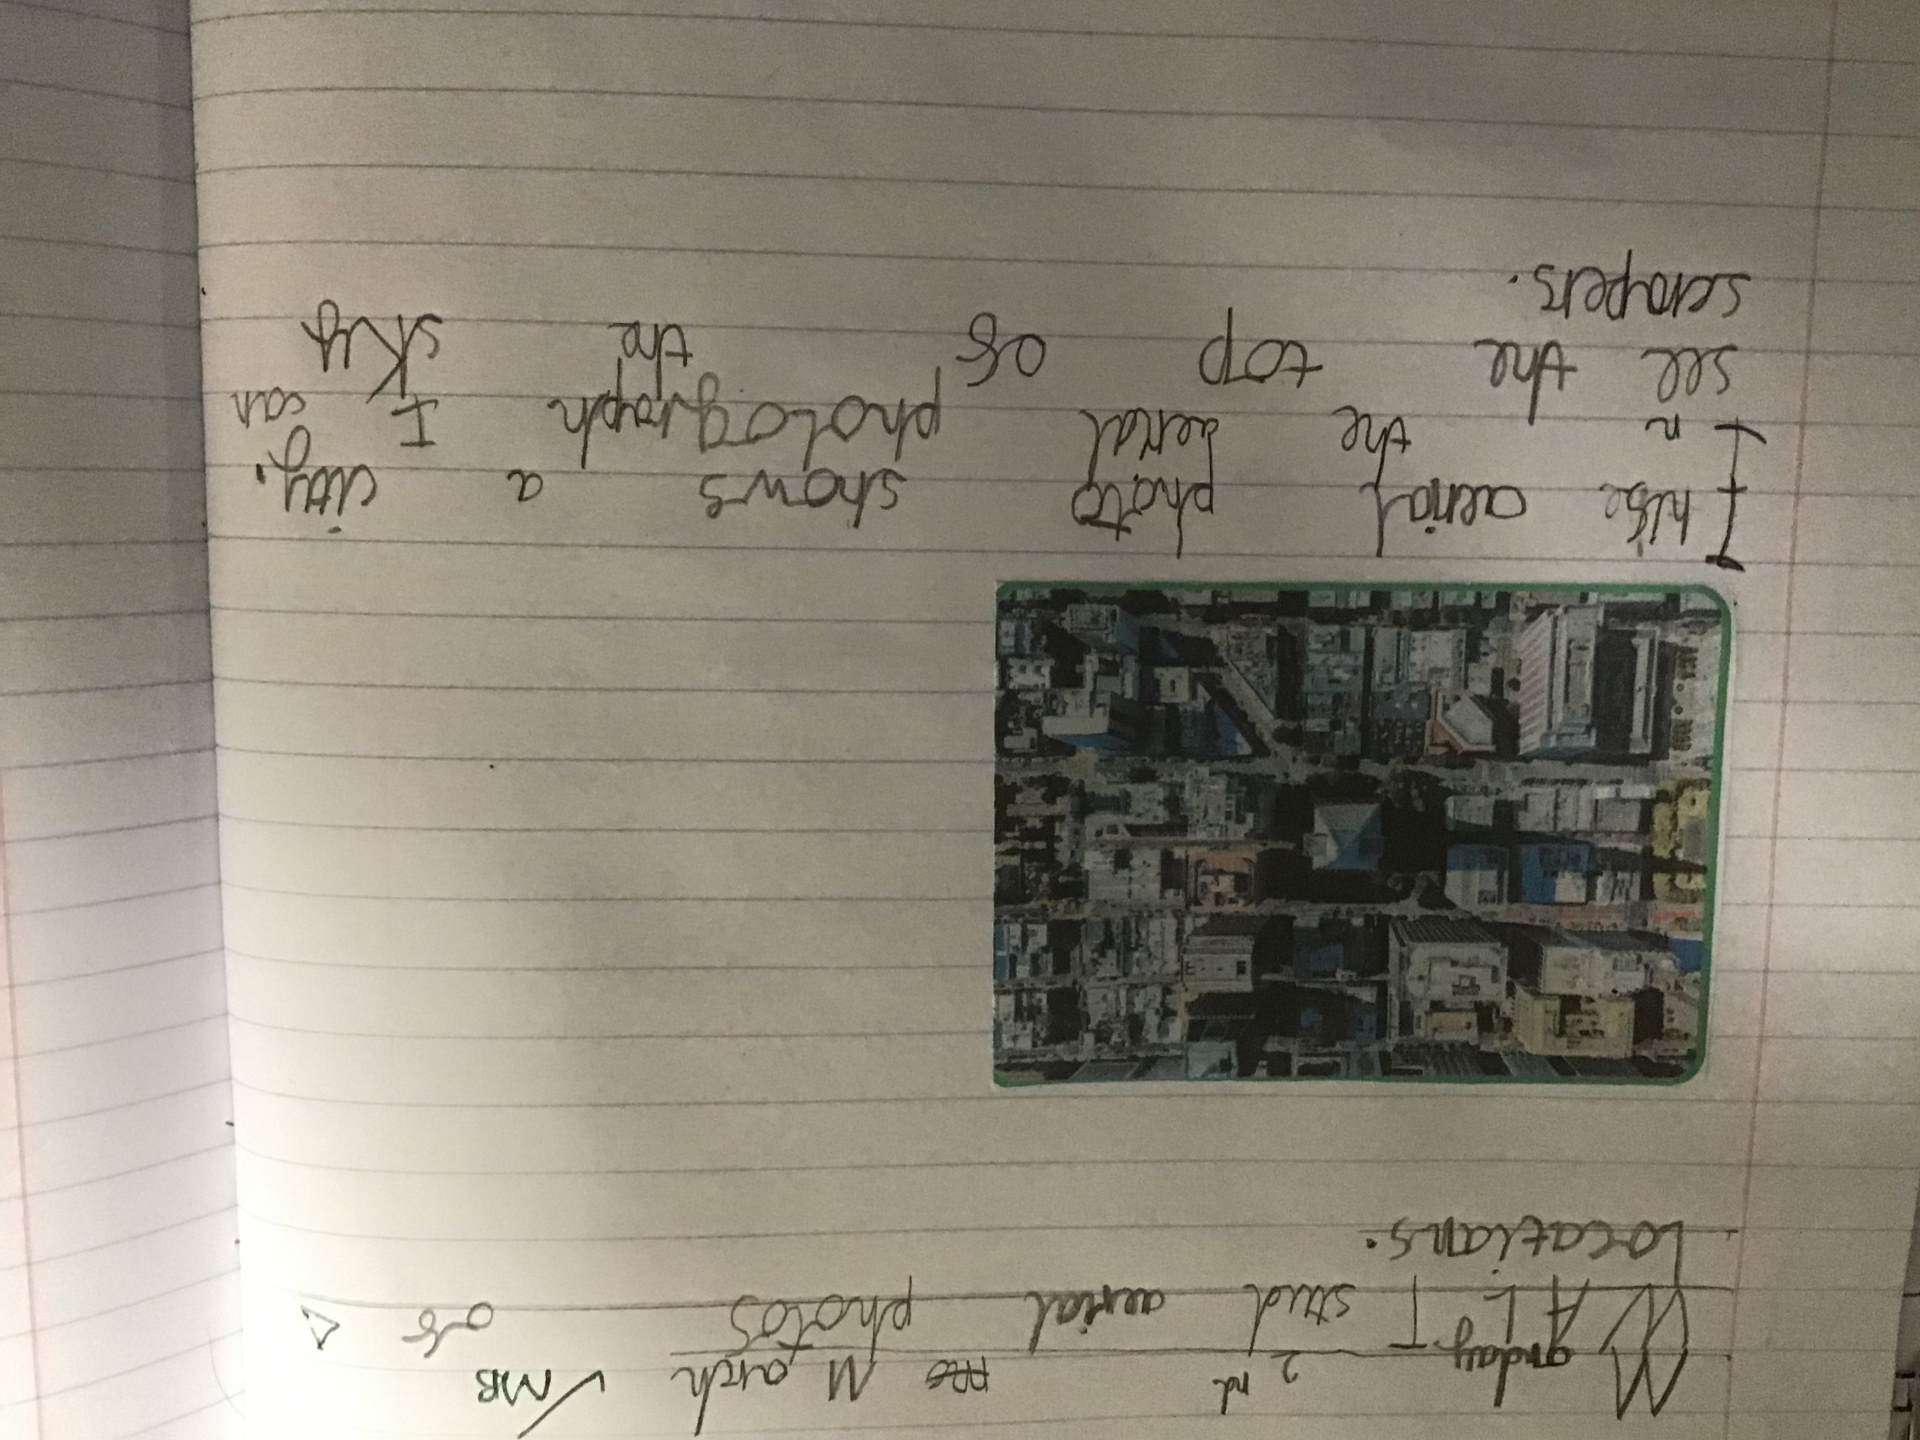 Monday 2nd March ✓MB
WALT stud aerial photos of
Locations.
This aerial photo shows a city.
In the aerial photograph I can
see the top of the sky
scrapers.